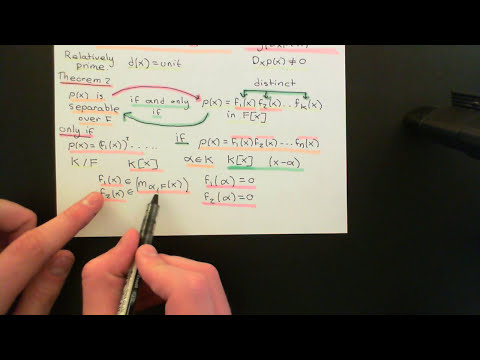 Relatively prime d(x)=unit
Dₓp(x)≠0
Theorem 2
p(x) is separable over F
if and only if
distinct
p(x)=f₁(x) f₂(x)...fₖ(x)
in F[x]
only if
if
p(x)=(f₁(x))².....
p(x)=f₁(x)f₂(x)...fₙ(x)
K/F K[x] α∈K K[x] (x-α)
f₁(x)∈(m_{α,F}(x)) f₁(α)=0
f₂(x)∈ f₂(α)=0